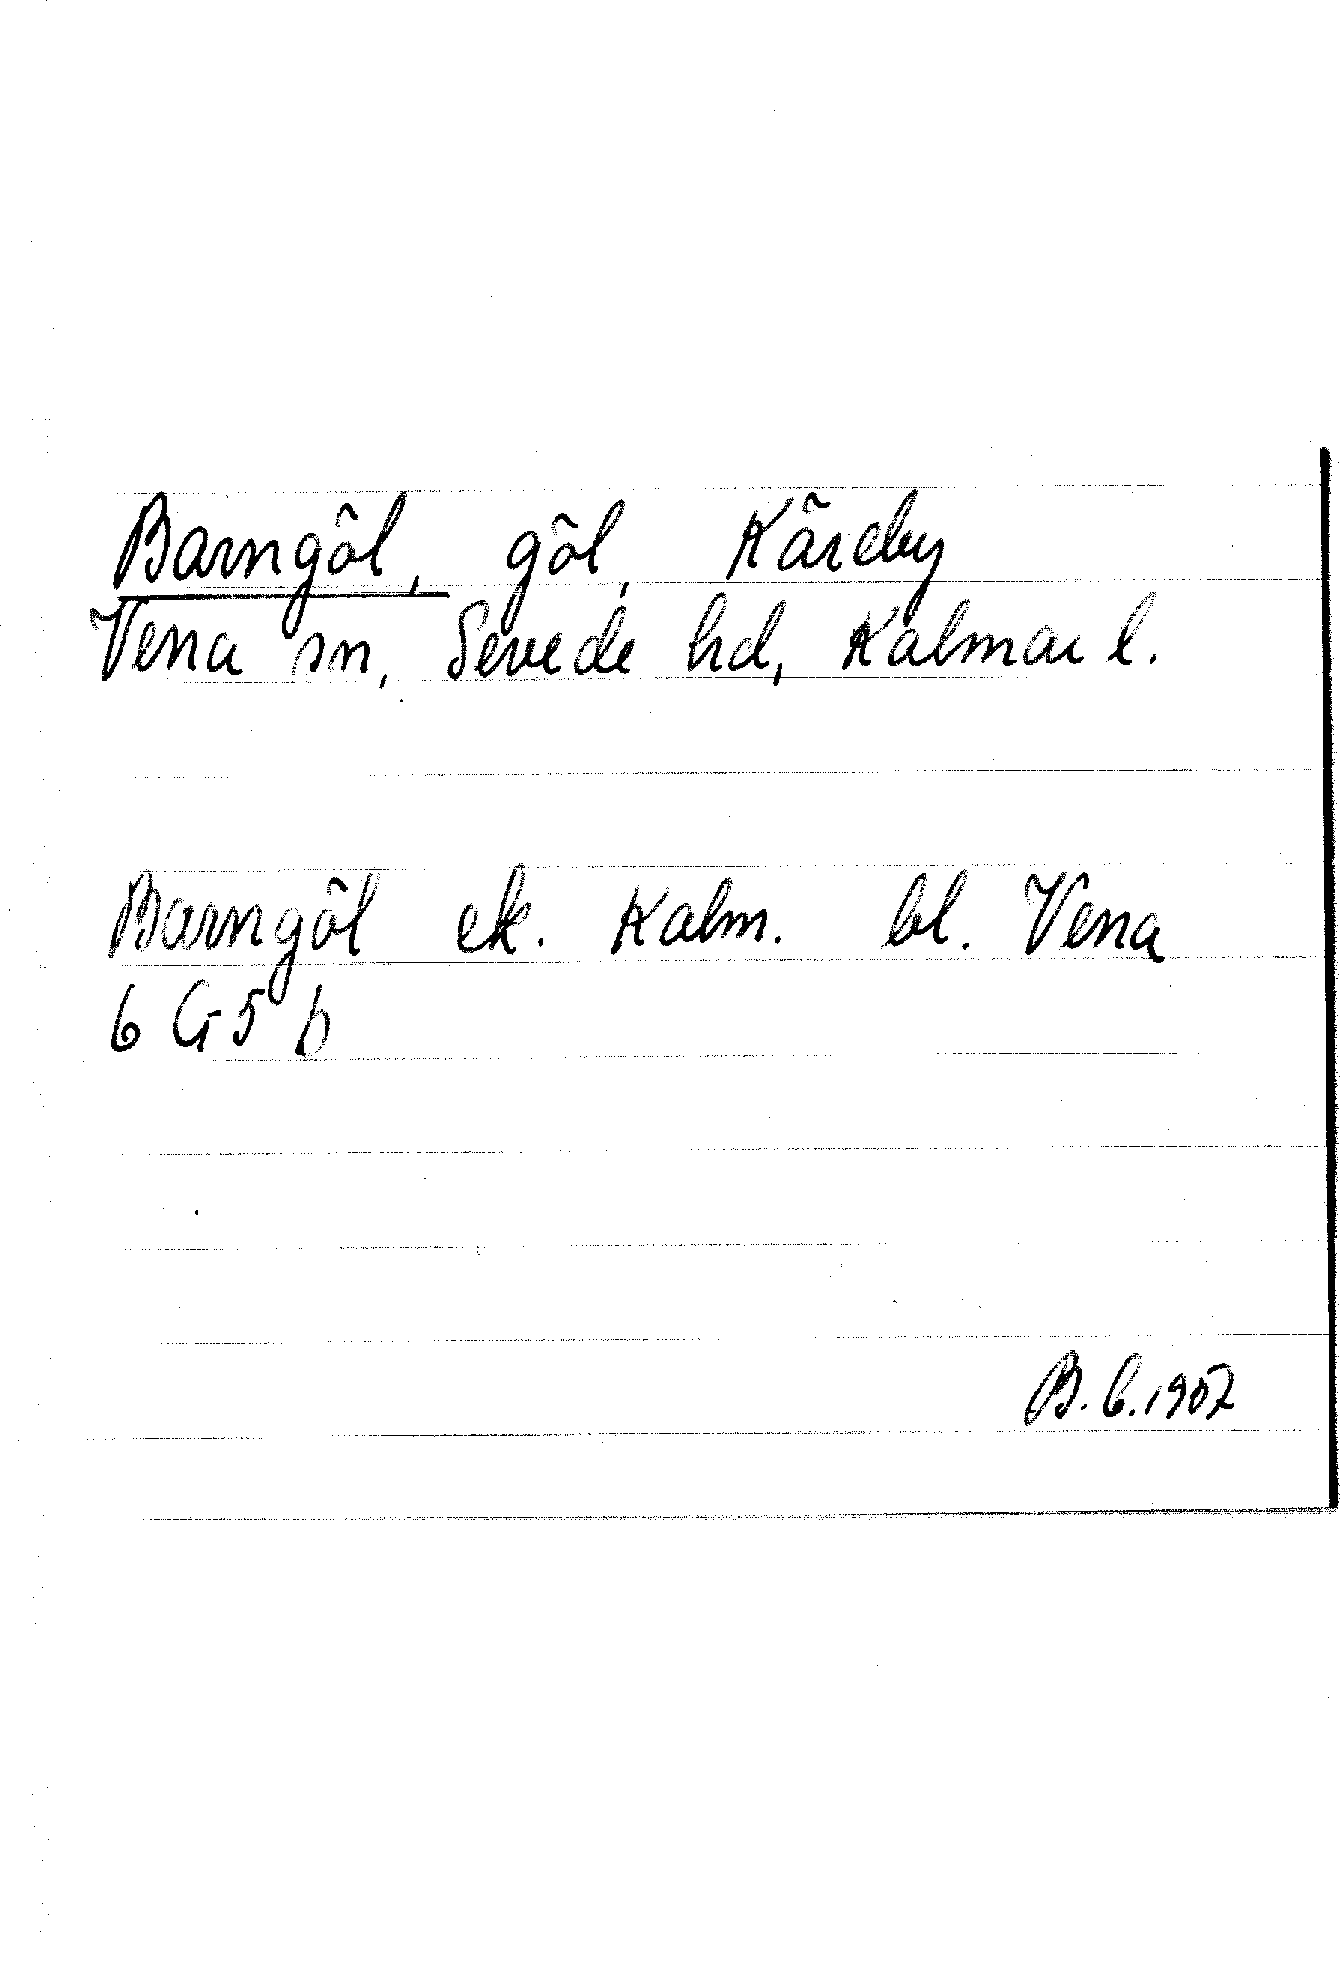 Barngöl, göl, Käreby
Vena sn, Sevede hd, Kalmar l.
Barngöl ek. Kalm. bl. Vena
6 G 5 b
B.C. 1957